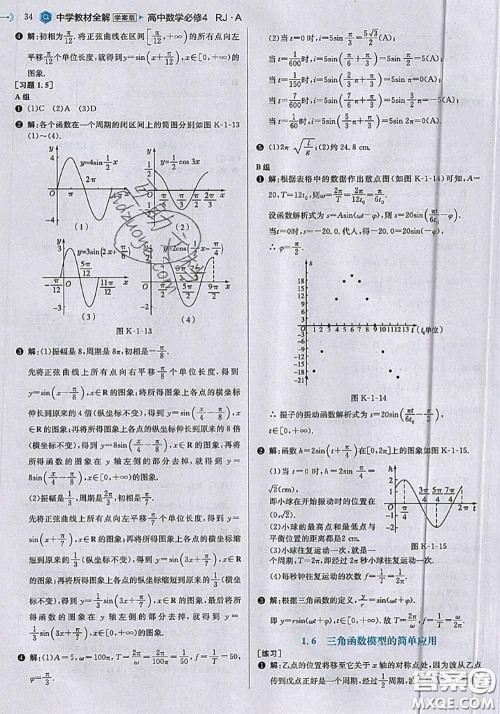 34 中学教材全解 学案版 高中数学必修4 RJ·A
❹ 解:初相为π/12.将正弦曲线在区间[π/12,+∞)的图象向左平移π/12个单位长度,就可得到y=sin(x+π/12),x∈[0,+∞)的图象.
[习题 1.5]
A 组
❶ (1)C (2)A (3)D
❷ 解:各个函数在一个周期的闭区间上的简图分别如图 K-1-13(1)~(4).
y=4sin 1/2 x
y=1/2 cos 3x
(1)
(2)
(3)
(4)
图 K-1-13
❸ 解:(1)振幅是 8,周期是 8π,初相是-π/8.
先将正弦曲线上所有点向右平行移动π/8个单位长度,得到
y=sin(x-π/8),x∈R 的图象;再将所得图象上各点的横坐标
伸长到原来的 4 倍(纵坐标不变),得到 y=sin(x/4-π/8),x∈R
的图象;再将所得图象上各点的纵坐标伸长到原来的 8 倍
(横坐标不变),得到 y=8sin(x/4-π/8),x∈R 的图象;最后将
所得函数图象在 y 轴左侧的部分去掉,就得到 y=
8sin(x/4-π/8),x∈[0,+∞)的图象.
(2)振幅是1/3,周期是2π/3,初相是π/7.
先将正弦曲线上所有点向左平行移动π/7个单位长度,得到
y=sin(x+π/7),x∈R 的图象;再将所得图象上各点的横坐标
缩短到原来的1/3(纵坐标不变),得到 y=sin(3x+π/7),x∈R
的图象;再将所得图象上各点的纵坐标缩短到原来的1/3(横
坐标不变),得到 y=1/3sin(3x+π/7),x∈R 的图象,最后将所
得函数图象在 y 轴左侧的部分去掉,就得到 y=
1/3sin(3x+π/7),x∈[0,+∞)的图象.
❹ 解:(1)A=5,ω=100π,T=2π/ω=2π/100π=1/50,f=1/T=50,
φ=π/3.
(2)当 t=0 时,i=5sin π/3=5√3/2(A);
当 t=1/600时,i=5sin π/2=5(A);
当 t=1/150时,i=5sin π=0(A);
当 t=7/600时,i=5sin 3π/2=-5(A);
当 t=1/60时,i=5sin 2π=0(A).
❺ (1)2π√(l/g);(2)约 24.8 cm.
B 组
❶ 解:根据表格中的数据作出散点图(如图 K-1-14)可知,A=
20,T=12t₀,则ω=2π/T=2π/12t₀=π/6t₀.
设函数解析式为 s=Asin(ωt+φ),
当 t=0 时,s=-20.0,代入,得-20.0=20sin φ.
∴ φ=-π/2.
图 K-1-14
∴ 振子的振动函数解析式为 s=20sin(πt/6t₀-π/2),
t∈[0,+∞).
❷ 解:函数 h=2sin(t+π/4)在[0,2π]上的图象如图 K-1-15.
(1)当 t=0 时,h=2sin π/4=√2,
即小球在开始振动时的位置在
(0,√2).
(2)小球的最高点和最低点与
平衡位置的距离都是2 cm.
(3)小球往复运动一次,就是
一个周期,周期 T=2π,即小球经过 2π s 往复运动一次.
(4)每秒钟往复运动一个频率,f=1/T=1/2π.
图 K-1-15
❸ 解:根据三角函数的定义,点 P 的纵坐标 y=rsin(ωt+φ),
即函数为 y=rsin(ωt+φ),t∈[0,+∞).其中 T=2π/ω,f=1/T=
ω/2π.
1.6 三角函数模型的简单应用
[练习]
❶ 解:乙点的位置将移至它关于 x 轴的对称点处,因为波从乙点
传到戊点正好是一个周期,经过1/2周期,
答案圈
MXQE.COM